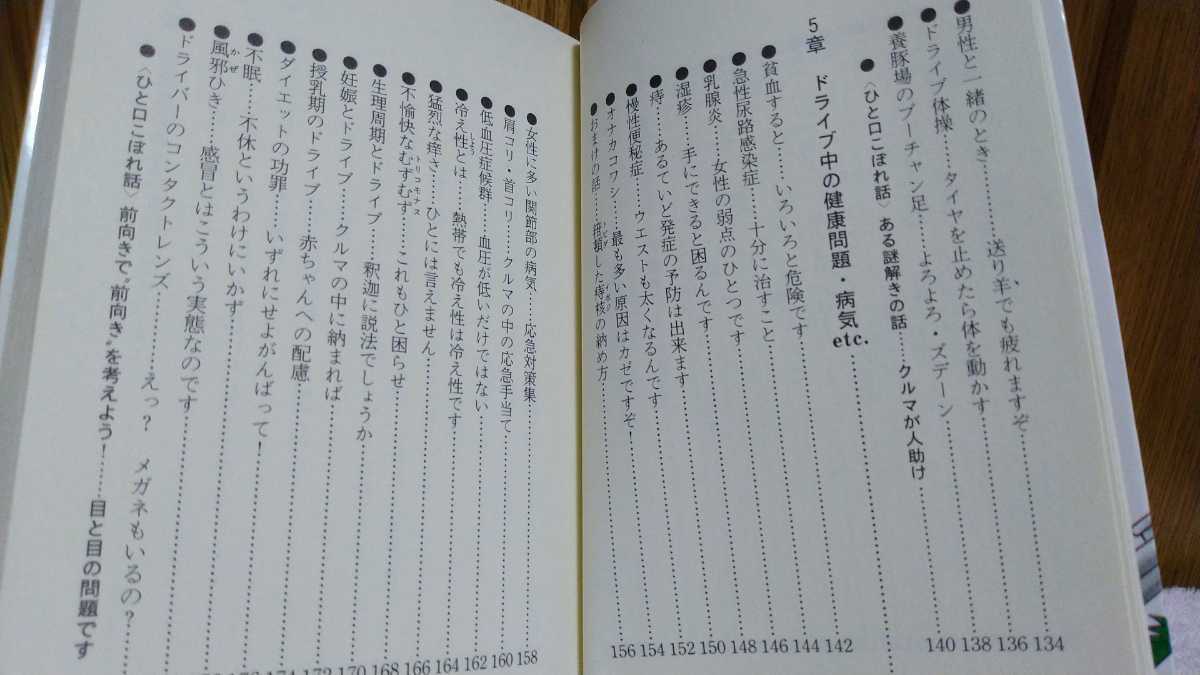 ●男性と一緒のとき……送り羊でも疲れますぞ……134
●ドライブ体操……タイヤを止めたら体を動かす……136
●養豚場のブーチャン足……よろよろ・ズデーン……138
●〈ひと口こぼれ話〉ある謎解きの話……クルマが人助け 140
5章 ドライブ中の健康問題・病気etc.……
●貧血すると……いろいろと危険です……142
●急性尿路感染症……十分に治すこと……144
●乳腺炎……女性の弱点のひとつです……146
●湿疹……手にできると困るんです……148
●痔……あるていど発症の予防は出来ます……150
●慢性便秘症……ウエストも太くなるんです……152
●オナカコワシ……最も多い原因はカゼですぞ！……154
●おまけの話……した痔核の納め方……156
●女性に多い関節部の病気……応急対策集……158
●肩コリ・首コリ……クルマの中の応急手当て……160
●低血圧症候群……血圧が低いだけではない……162
●冷え性とは……熱帯でも冷え性は冷え性です……164
●猛烈な痒さ……ひとには言えません……166
●不愉快なむずむず……これもひと困らせ……168
●生理周期とドライブ……釈迦に説法でしょうか……170
●妊娠とドライブ……クルマの中に納まれば……172
●授乳期のドライブ……赤ちゃんへの配慮……174
●ダイエットの功罪……いずれにせよがんばって！……
●不眠……不休というわけにいかず……
●風邪ひき……感冒とはこういう実態なのです……
●ドライバーのコンタクトレンズ……えっ？ メガネもいるの？……
●〈ひと口こぼれ話〉前向きで〝前向き〟を考えよう！……目と目の問題です